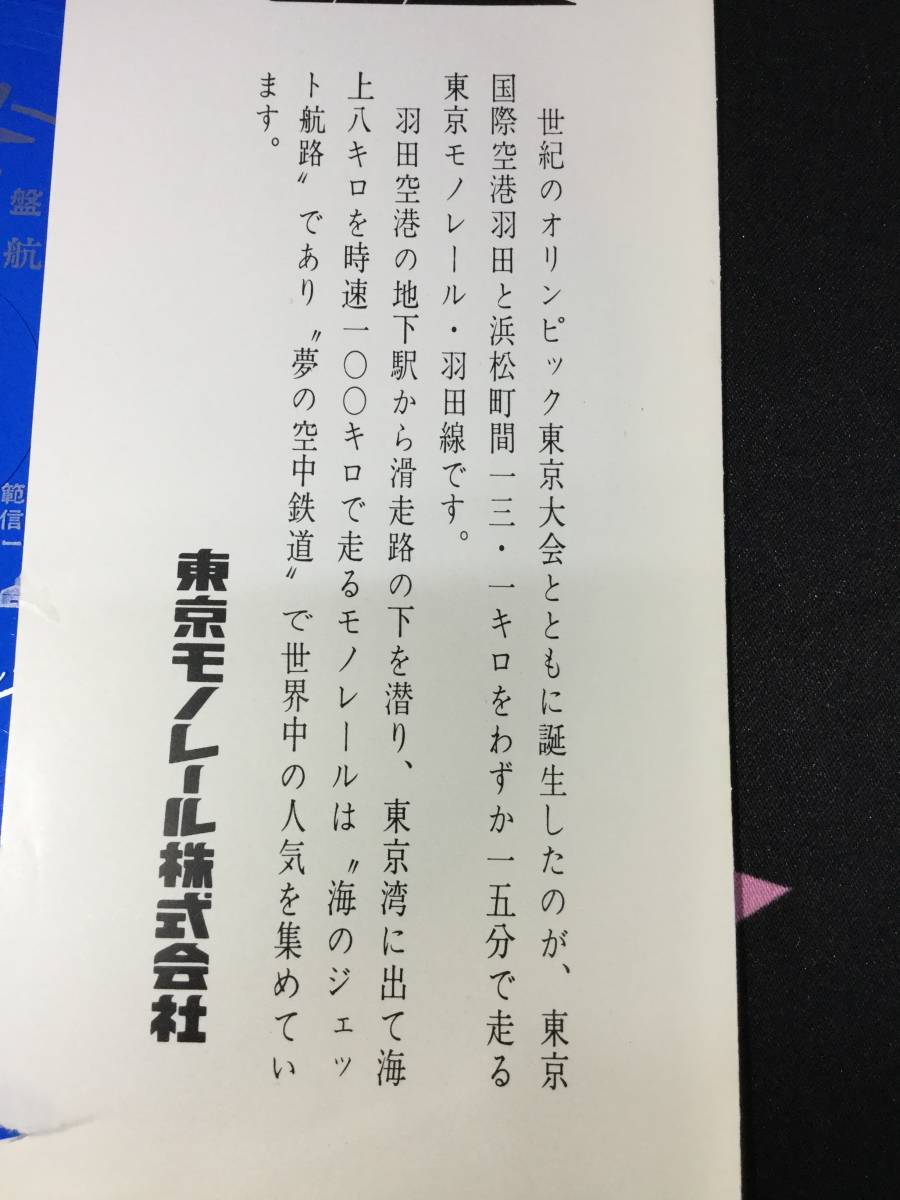 世紀のオリンピック東京大会とともに誕生したのが、東京
国際空港羽田と浜松町間一三・一キロをわずか一五分で走る
東京モノレール・羽田線です。
羽田空港の地下駅から滑走路の下を潜り、東京湾に出て海
上八キロを時速一〇〇キロで走るモノレールは〝海のジェッ
ト航路〟であり〝夢の空中鉄道〟で世界中の人気を集めてい
ます。
東京モノレール株式会社
盤
航
範
信一